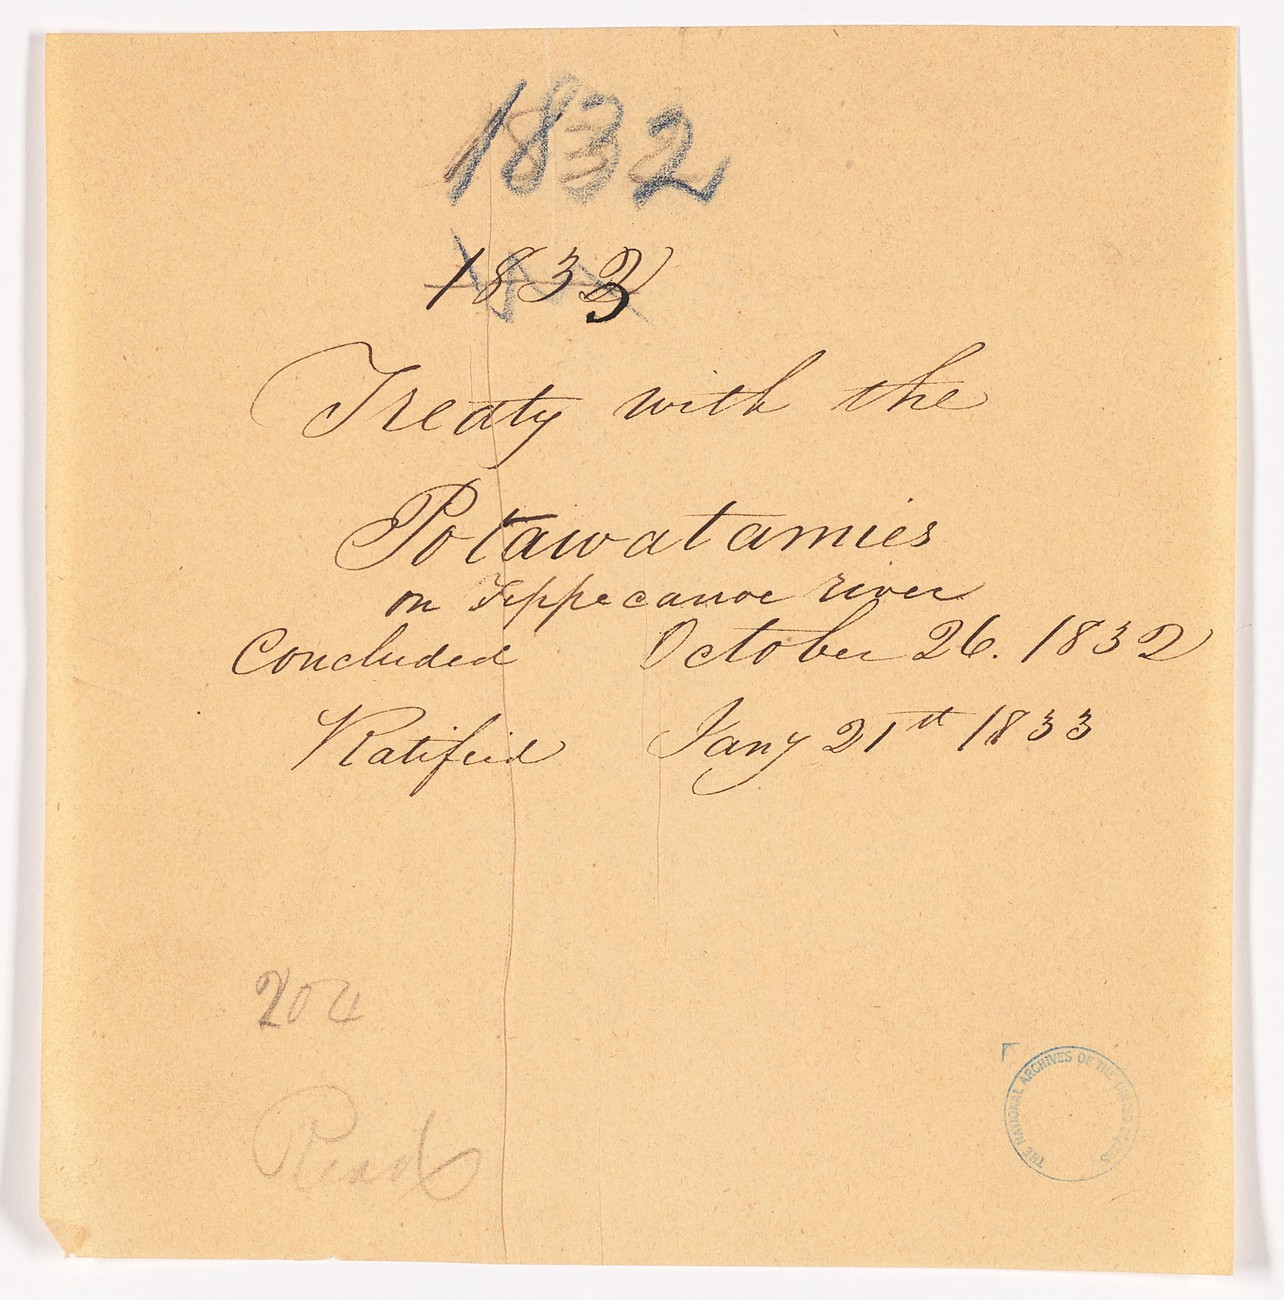 1832
1833
Treaty with the
Potawatamies
on Tippecanoe river
Concluded October 26. 1832
Ratified Jany 21st 1833
204
Read
THE NATIONAL ARCHIVES OF THE UNITED STATES